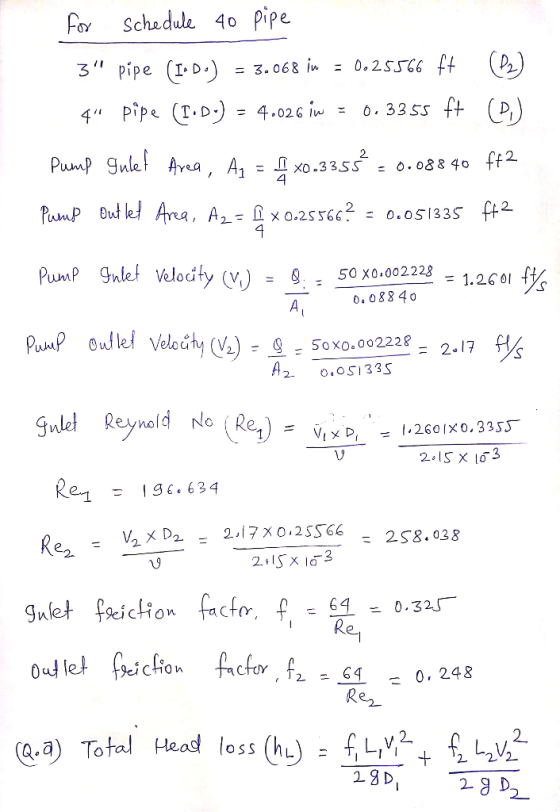 For Schedule 40 Pipe
3" pipe (I.D.) = 3.068 in = 0.25566 ft (D₂)
4" pipe (I.D.) = 4.026 in = 0.3355 ft (D₁)
Pump Inlet Area, A₁ = π/4 x0.3355² = 0.08840 ft2
Pump Outlet Area, A₂ = π/4 x 0.25566² = 0.051335 ft2
Pump Inlet Velocity (V₁) = Q/A₁ = 50 x0.002228/0.08840 = 1.2601 ft/s
Pump Outlet Velocity (V₂) = Q/A₂ = 50x0.002228/0.051335 = 2.17 ft/s
Inlet Reynold No (Re₁) = V₁ x D₁/ν = 1.2601x0.3355/2.15 x 10⁻³
Re₁ = 196.634
Re₂ = V₂ x D₂/ν = 2.17 x 0.25566/2.15 x 10⁻³ = 258.038
Inlet friction factor, f₁ = 64/Re₁ = 0.325
Outlet friction factor, f₂ = 64/Re₂ = 0.248
(Q.a) Total Head loss (hL) = f₁ L₁ V₁²/2gD₁ + f₂ L₂ V₂²/2g D₂